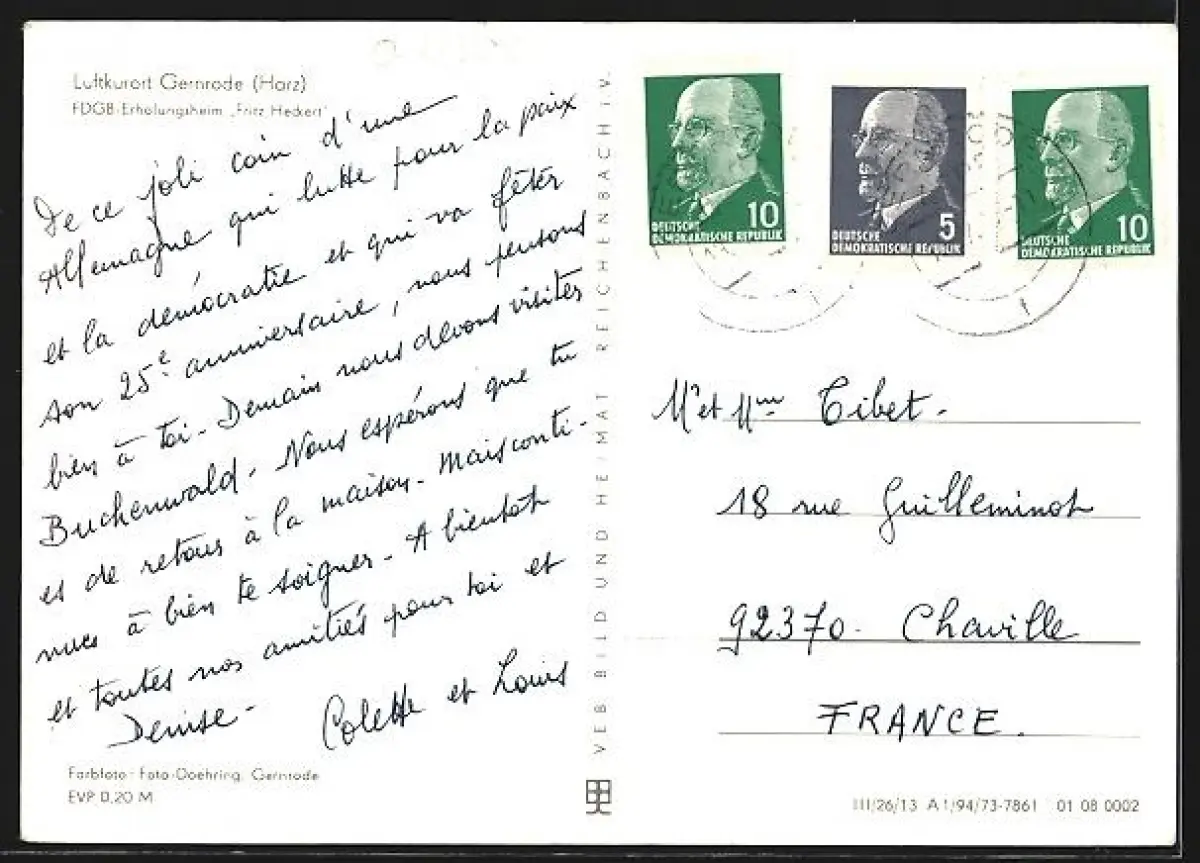 Luftkurort Gernrode (Harz)
FDGB-Erholungsheim „Fritz Heckert"
De ce joli coin d'une
Allemagne qui lutte pour la paix
et la démocratie et qui va fêter
son 25e anniversaire, nous pensons
bien à toi - Demain nous devons visiter
Buchenwald. Nous espérons que tu
es de retour à la maison - Mais conti-
nues à bien te soigner - A bientôt
et toutes nos amitiés pour toi et
Denise -
Colette et Louis
Farbfoto: Foto-Doehring, Gernrode
EVP 0,20 M
VEB BILD UND HEIMAT REICHENBACH i.V.
10
DEUTSCHE
DEMOKRATISCHE REPUBLIK
5
DEUTSCHE
DEMOKRATISCHE REPUBLIK
10
DEUTSCHE
DEMOKRATISCHE REPUBLIK
Mr et Mme Tibet.
18 rue Guilleminot
92370. Chaville
FRANCE.
III/26/13 A 1/94/73-7861 01 08 0002